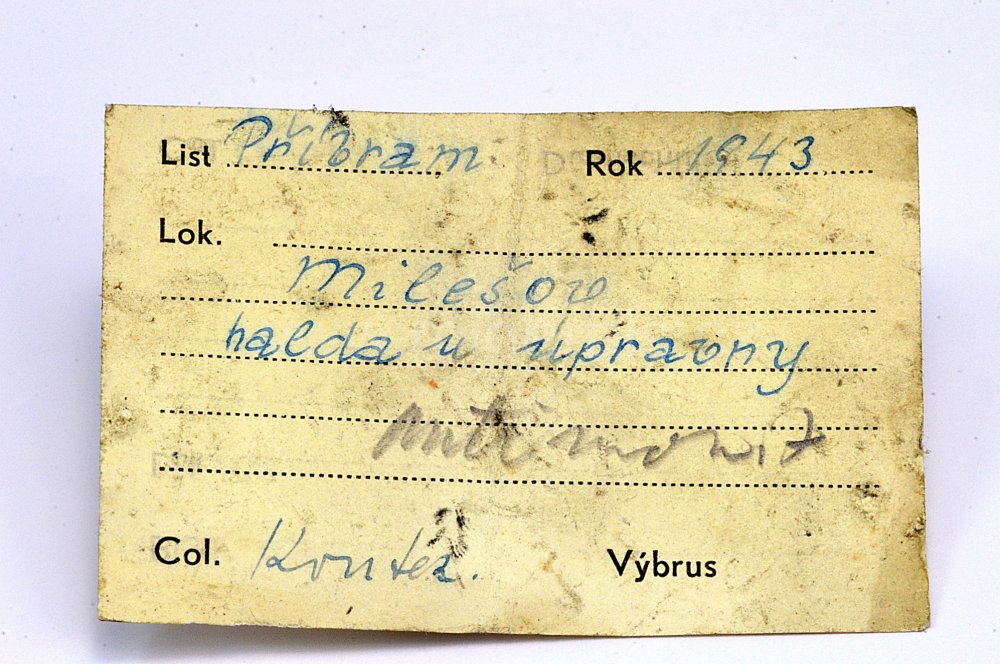 List Příbram Rok 1943
Lok.
Milešov
halda u úpravny
antimonit
Col. Výbrus